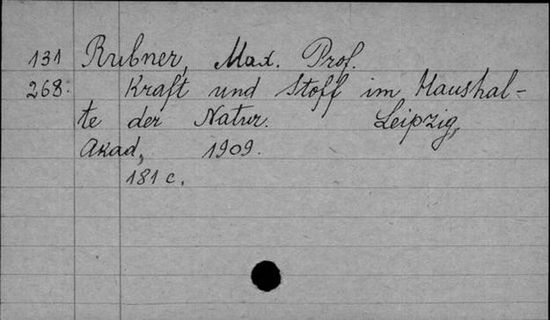 131 Rubner, Max. Prof.
268. Kraft und Stoff im Haushal-
te der Natur. Leipzig,
Akad, 1909.
181 c.